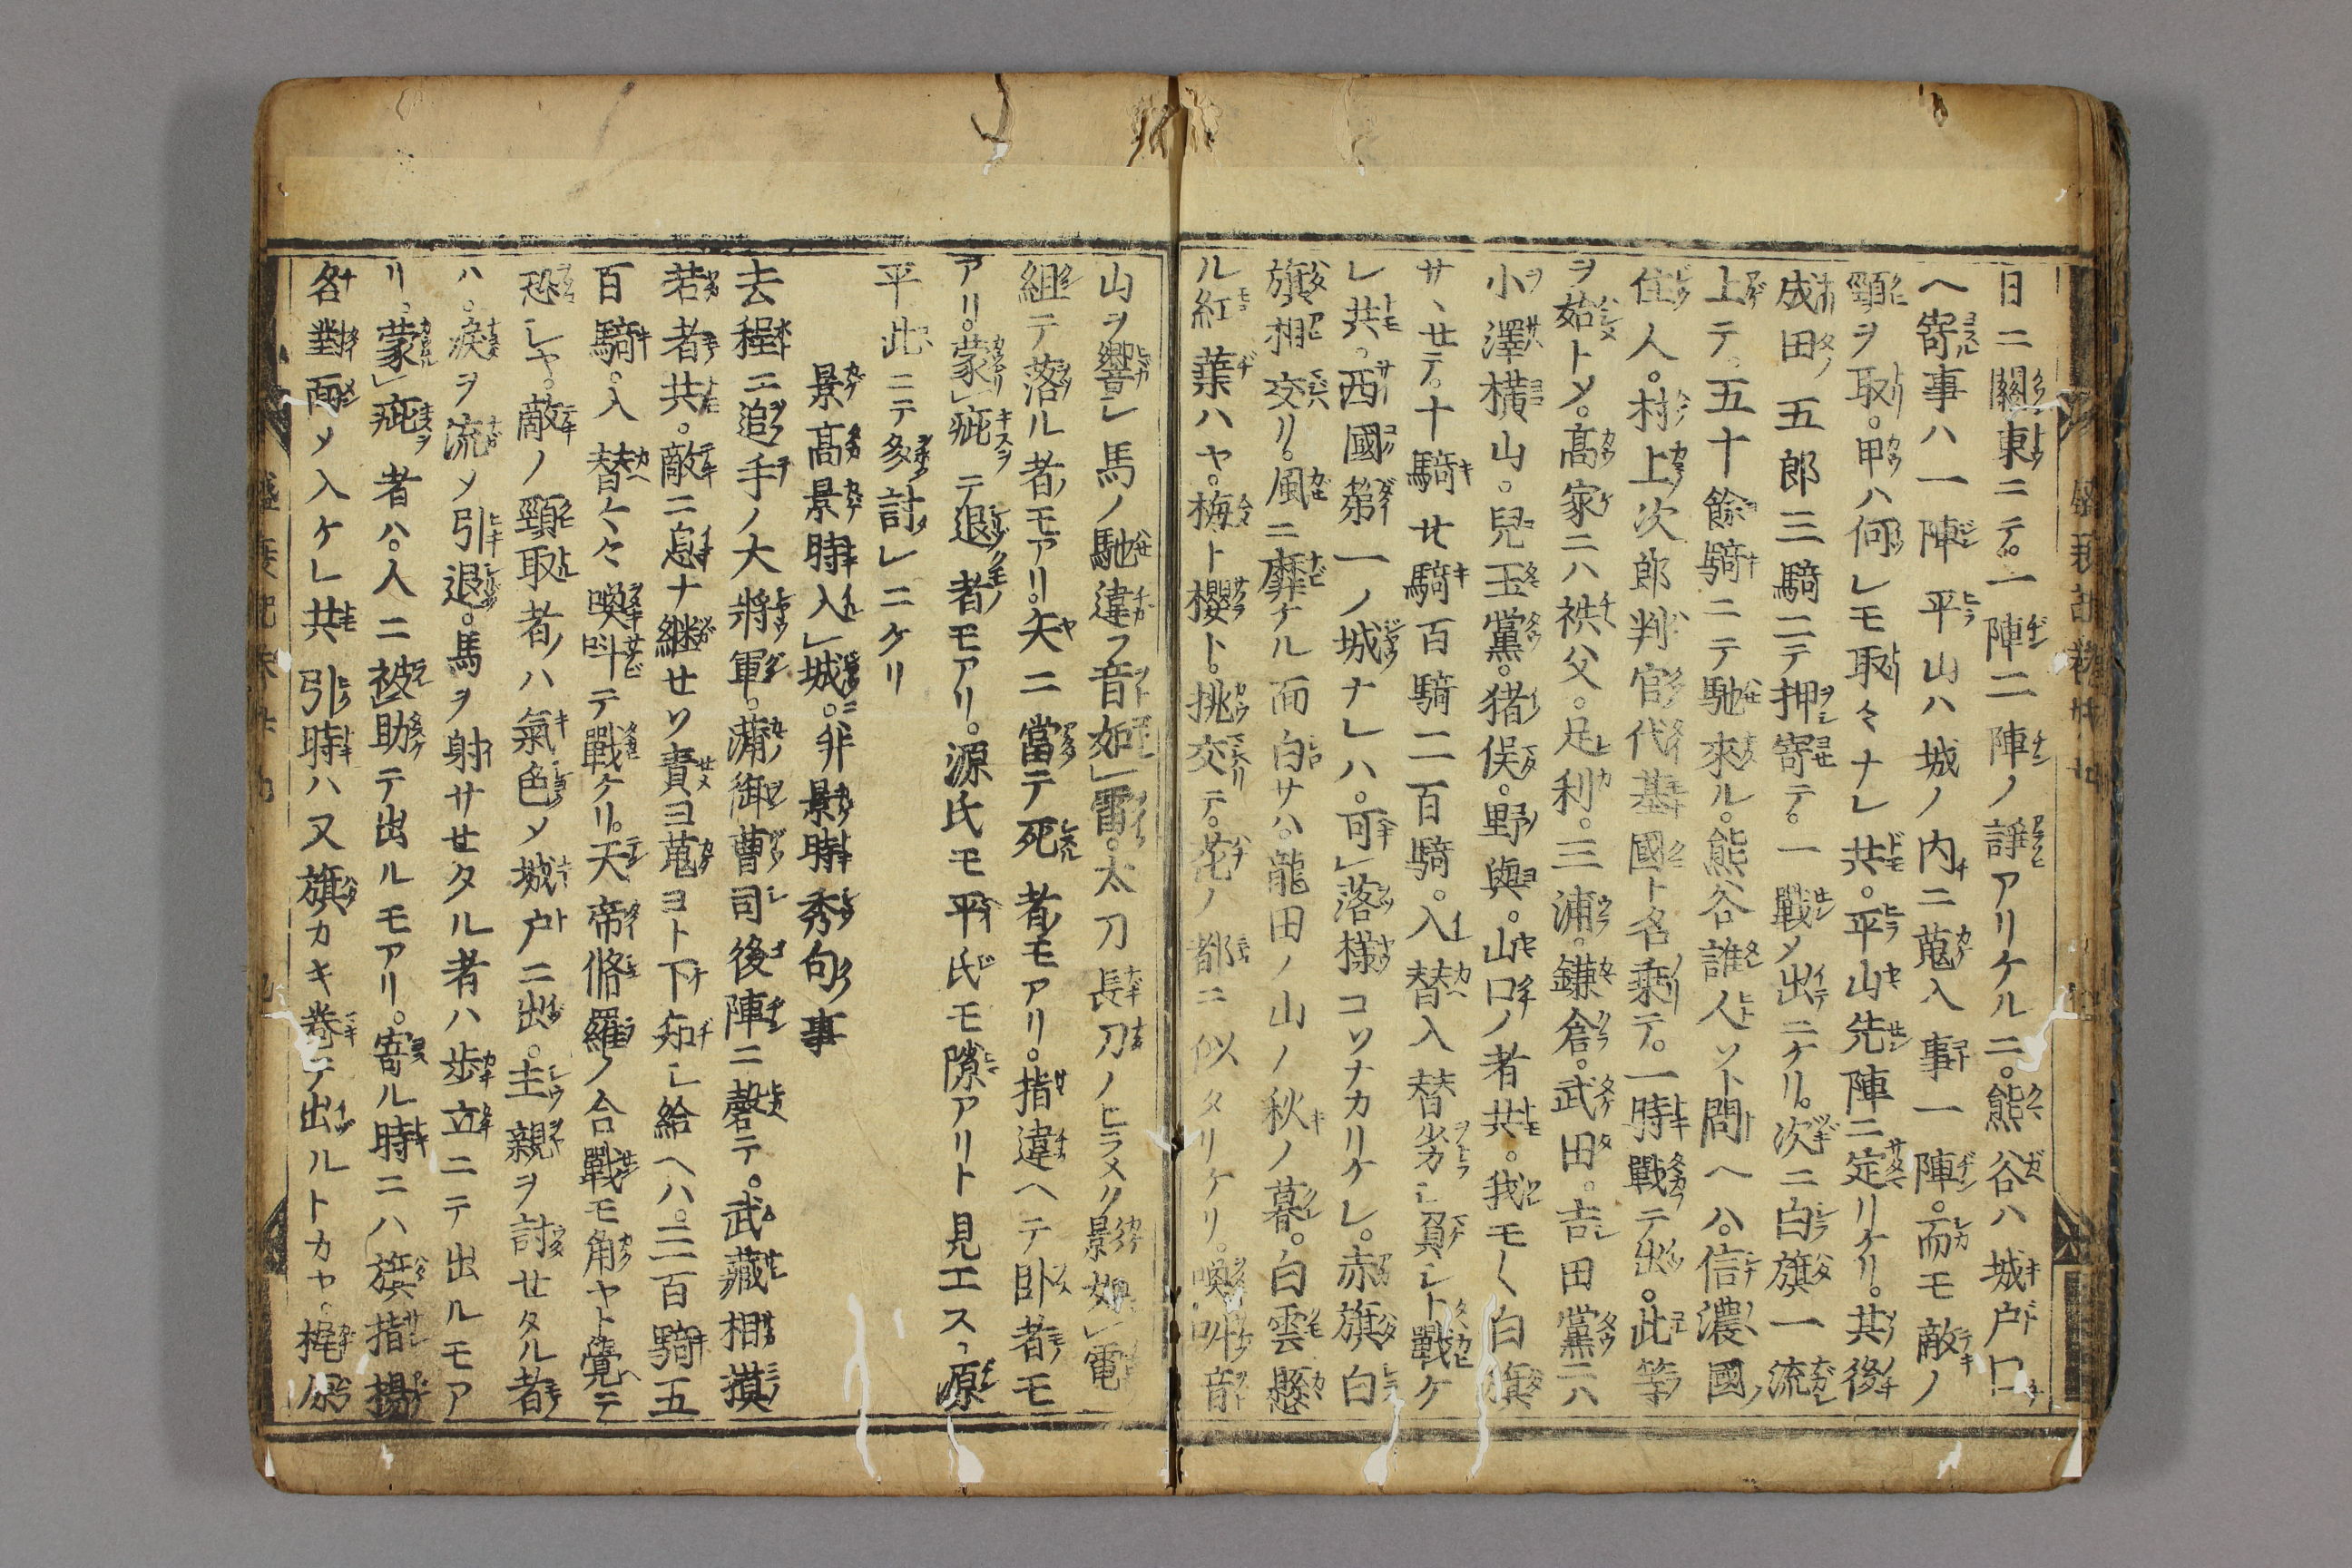 日ニ關東ニテ。一陣二陣ノ諍アリケルニ。熊谷ハ城戸口
ヘ寄事ハ一陣平山ハ城ノ内ニ蒐入事一陣。而モ敵ノ
頸ヲ取。甲ハ何レモ取々ナレ共。平山先陣ニ定リケリ。其後
成田五郎三騎ニテ押寄テ。一戰メ出ニケリ。次ニ白旗一流
上テ。五十餘騎ニテ馳來ル。熊谷誰人ソト問ヘハ。信濃國ノ
住人。村上次郎判官代基國ト名乘テ。一時戰テ出。此等
ヲ始トメ。高家ニハ秩父。足利。三浦。鎌倉。武田。吉田黨ニハ
小澤橫山。兒玉黨。猪俣。野與。山口ノ者共。我モ〱白旗
サヽセテ。十騎廿騎百騎二百騎。入替入替劣シ負シト戰ケ
レ共。西國第一ノ城ナレハ。可落樣コソナカリケレ。赤旗白
旗相交リ。風ニ靡ケル面白サハ。龍田ノ山ノ秋ノ暮。白雲懸
ル紅葉ハヤ。梅ト櫻ト。挑交テ。花ノ都ニ似タリケリ。喚叫音
山ヲ響シ馬ノ馳違フ音如雷。太刀長刀ノヒラメク景如電
組テ落ル者モアリ。矢ニ當テ死者モアリ。指違ヘテ臥者モ
アリ。蒙疵テ退者モアリ。源氏モ平氏モ隙アリト見エス、源
平此ニテ多討レニケリ
景高景時入城。并景時秀句事
去程ニ追手ノ大將軍。蒲御曹司後陣ニ磬テ。武藏相摸
若者共。敵ニ息ナ繼セソ責ヨ蒐ヨト下知シ給ヘハ。三百騎五
百騎。入替々々喚叫テ戰ケリ。天帝脩羅ノ合戰モ角ヤト覺テ
恐シヤ。敵ノ頸取者ハ氣色メ城戸ニ出。主親ヲ討セタル者
ハ。淚ヲ流メ引退。馬ヲ射サセタル者ハ歩立ニテ出ルモア
リ。蒙疵者ハ。人ニ被助テ出ルモアリ。寄ル時ニハ旗指揚
各對面メ入ケレ共引時ハ又旗カキ卷テ出ルトカヤ。梶原